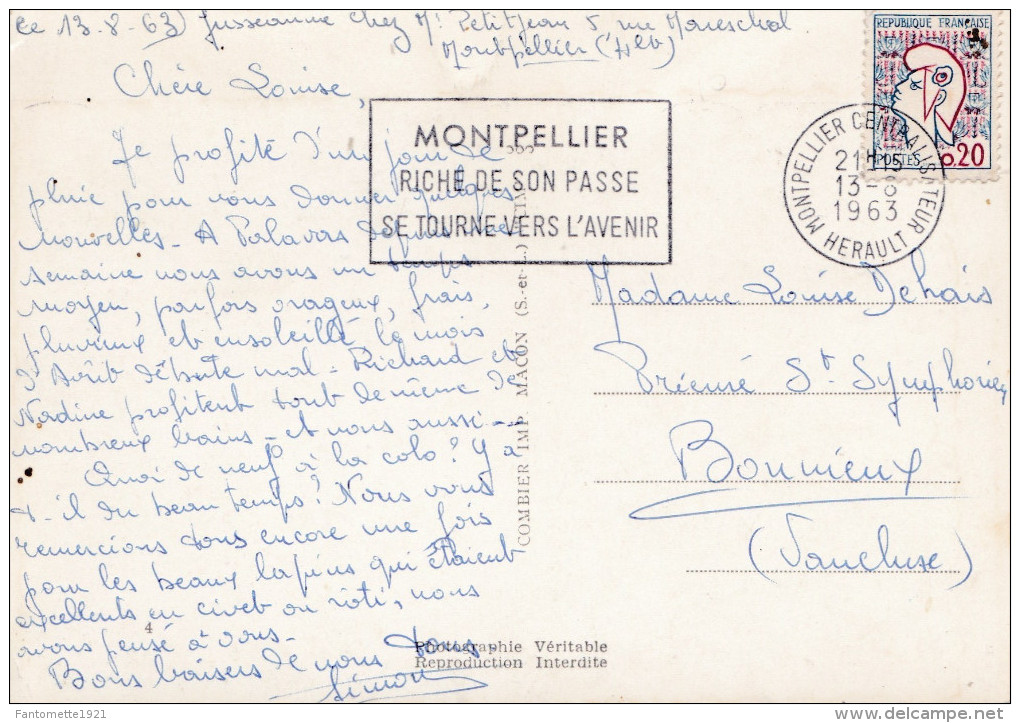 ce 13-8-63) Jusseaume chez Mr Petitjean 5 rue Mareschal
Montpellier (Hlt)
Chère Louise,
Je profite d'un jour de
pluie pour vous donner quelques
nouvelles - A Palavas depuis une
semaine nous avons un temps
moyen, parfois orageux, frais,
pluvieux et ensoleillé le mois
d'Août débute mal - Richard et
Nadine profitent tout de même de
nombreux bains - et nous aussi -
Quoi de neuf à la colo? Y a
t-il du beau temps? Nous vous
remercions tous encore une fois
pour les beaux lapins qui étaient
excellents en civet ou rôti, nous
avons pensé à vous -
Bons baisers de nous tous
Simon
4
MONTPELLIER
RICHE DE SON PASSE
SE TOURNE VERS L'AVENIR
MONTPELLIER CENTRALISATEUR
21H15
13-8
1963
HERAULT
REPUBLIQUE FRANÇAISE
POSTES 0,20
COMBIER IMP. MACON (S.-et-L.)
Madame Louise Dehais
Prieuré St Symphorien
Bonnieux
(Vaucluse)
Photographie Véritable
Reproduction Interdite
Fantomette1921
delcampe.net